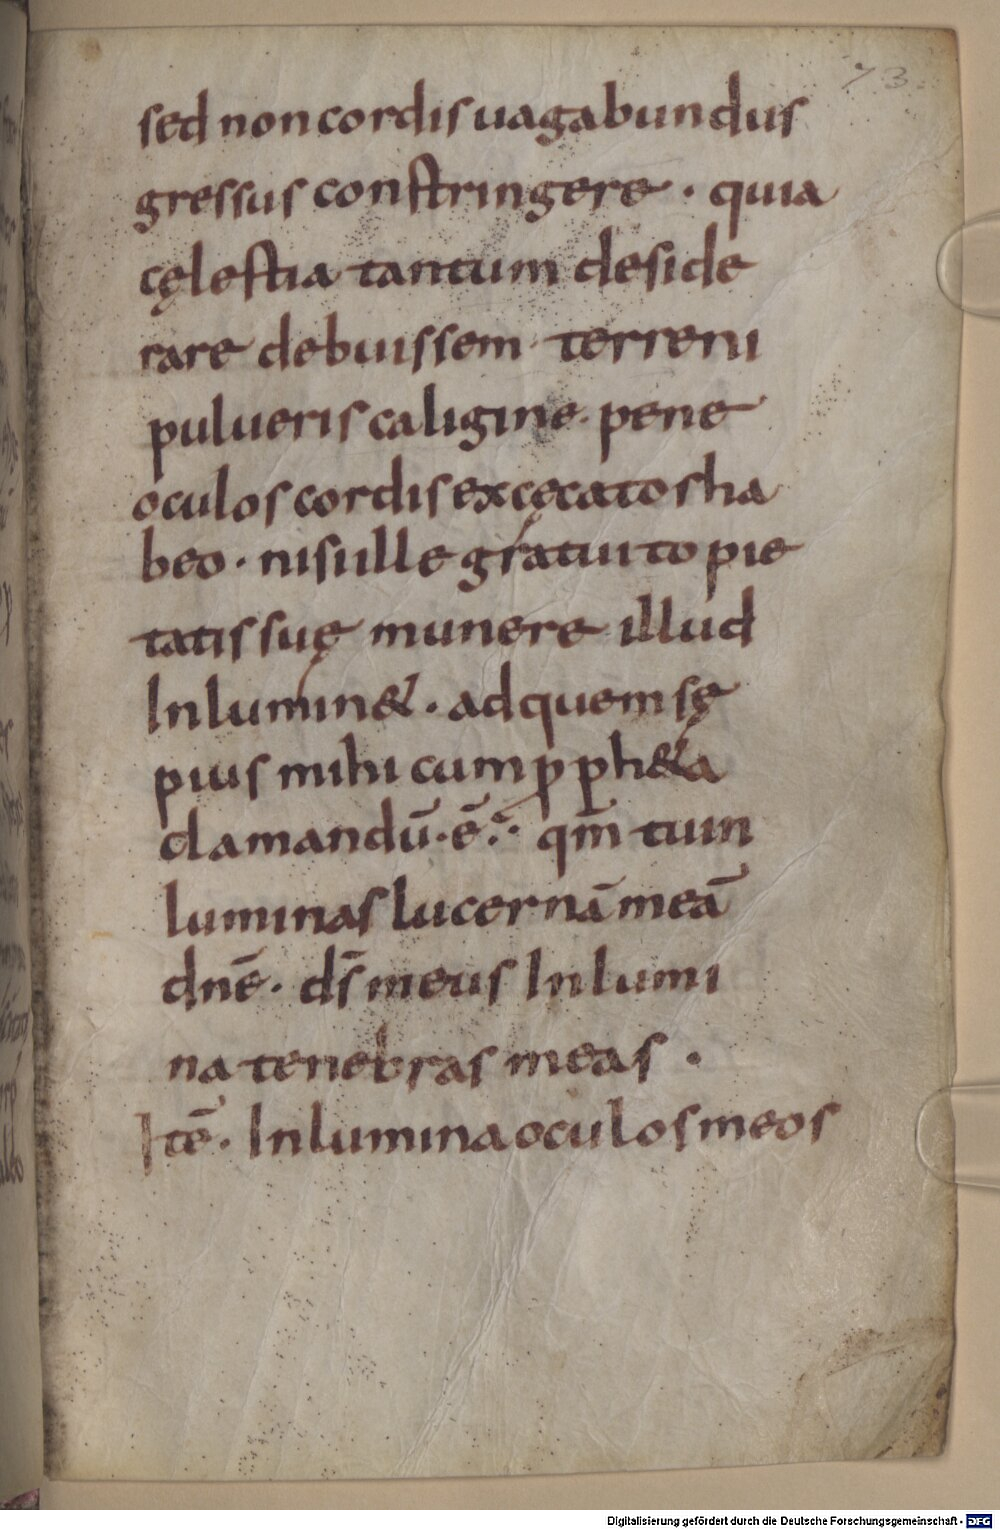 73
sed non cordis uagabundus
gressus constringere · quia
cęlestia tantum deside
rare debuissem · terreni
pulueris caligine · pene
oculos cordis excęcatos ha
beo · nisi ille gratuito pie
tatis suę munere illud
Inlumin& · ad quem sę
pius mihi cum pph&a
clamandū · ē · qm̄ tu in
luminas lucernā meā
dnē · ds̄ meus Inlumi
na tenebras meas ·
Itē · Inlumina oculos meos
Digitalisierung gefördert durch die Deutsche Forschungsgemeinschaft - DFG